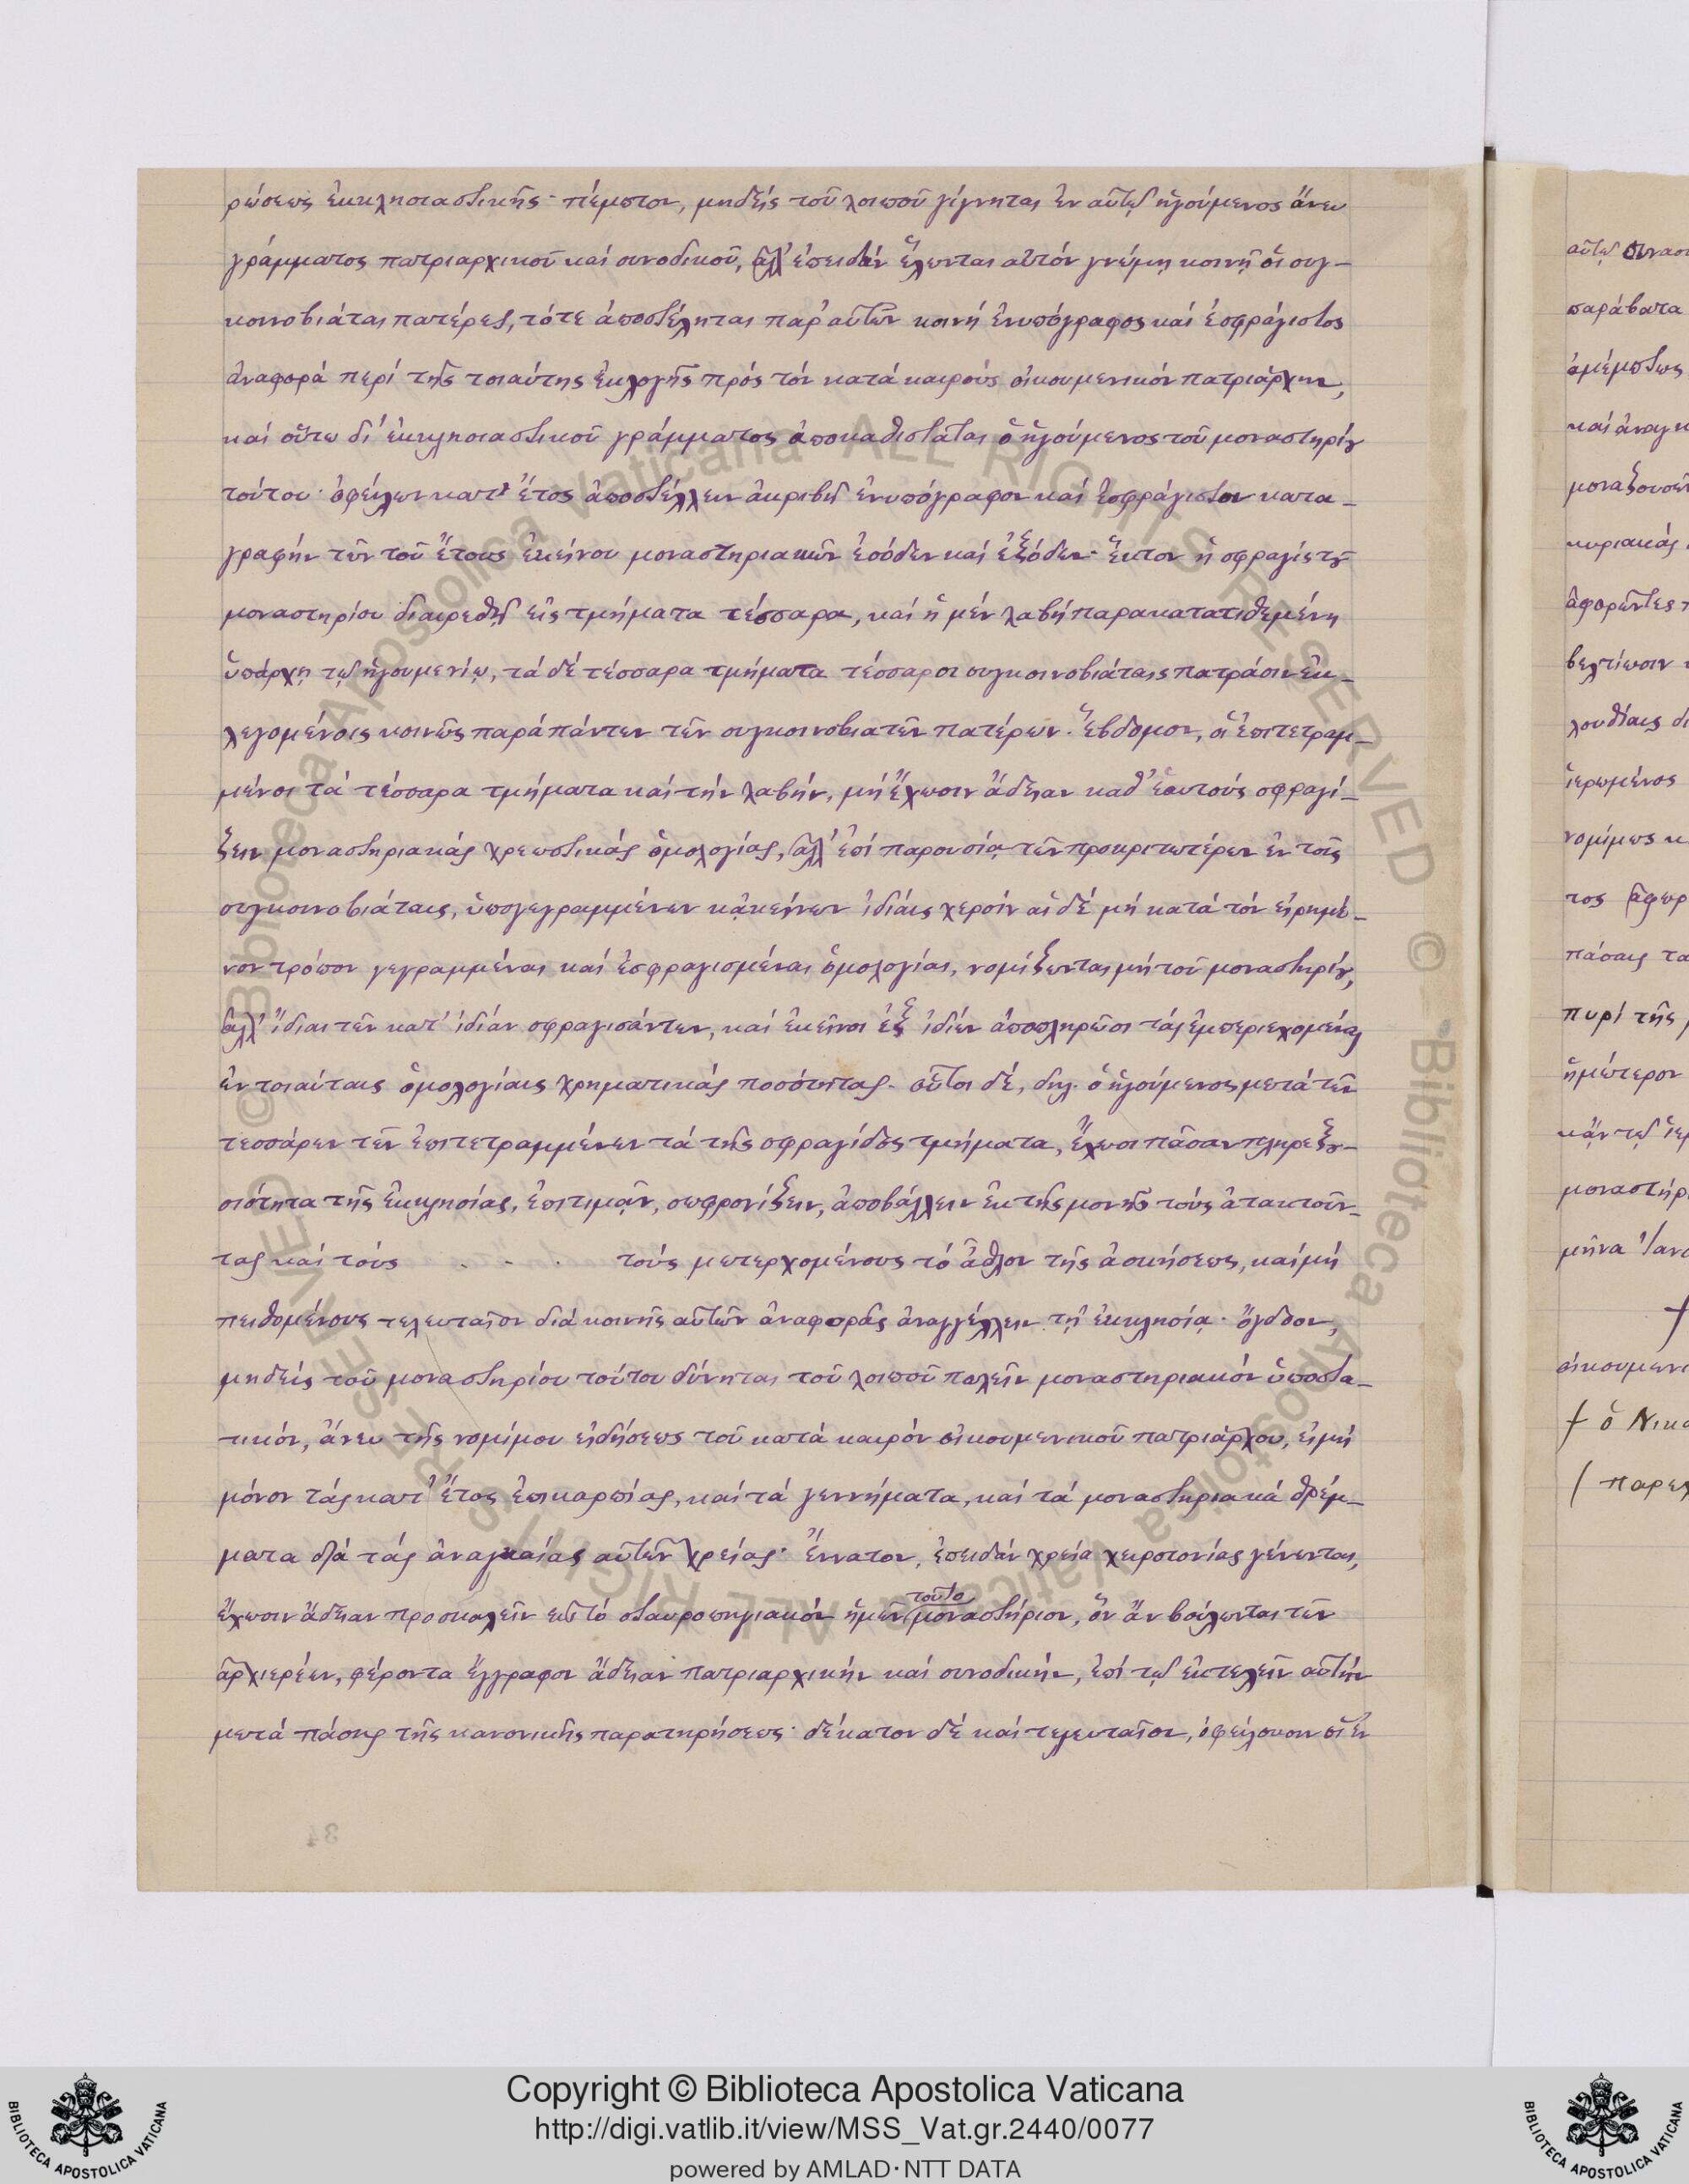 ρώσεως ἐκκλησιαστικῆς· πέμπτον, μηδείς τοῦ λοιποῦ γίγνηται ἐν αὐτῷ ἡγούμενος ἄνευ
γράμματος πατριαρχικοῦ καί συνοδικοῦ, ἀλλ' ἐπειδάν ἕλωνται αὐτόν γνώμῃ κοινῇ οἱ συγ-
κοινοβιάται πατέρες, τότε ἀποστέλληται παρ' αὐτῶν κοινή ἐνυπόγραφος καί ἐσφράγιστος
ἀναφορά περί τῆς τοιαύτης ἐκλογῆς πρός τόν κατά καιρούς οἰκουμενικόν πατριάρχην,
καί οὕτω δι' ἐκκλησιαστικοῦ γράμματος ἀποκαθιστᾶται ὁ ἡγούμενος τοῦ μοναστηρίου
τούτου· ὀφείλων κατ' ἔτος ἀποστέλλειν ἀκριβῆ ἐνυπόγραφον καί ἐσφράγιστον κατα-
γραφήν τῶν τοῦ ἔτους ἐκείνου μοναστηριακῶν ἐσόδων καί ἐξόδων· ἕκτον ἡ σφραγίς τοῦ
μοναστηρίου διαιρεθῇ εἰς τμήματα τέσσαρα, καί ἡ μέν λαβή παρακατατιθεμένη
ὑπάρχῃ τῷ ἡγουμενίῳ, τά δέ τέσσαρα τμήματα τέσσαρσι συγκοινοβιάταις πατράσιν ἐκ-
λεγομένοις κοινῶς παρά πάντων τῶν συγκοινοβιατῶν πατέρων. ἕβδομον, οἱ ἐπιτετραμ-
μένοι τά τέσσαρα τμήματα καί τήν λαβήν, μή ἔχωσιν ἄδειαν καθ' ἑαυτούς σφραγί-
ζειν μοναστηριακάς χρεωστικάς ὁμολογίας, ἀλλ' ἐπί παρουσίᾳ τῶν προκριτωτέρων ἐν τοῖς
συγκοινοβιάταις, ὑπογεγραμμένων κἀκείνων ἰδίαις χερσίν αἱ δέ μή κατά τόν εἰρημέ-
νον τρόπον γεγραμμέναι καί ἐσφραγισμέναι ὁμολογίαι, νομίζωνται μή τοῦ μοναστηρίου,
ἀλλ' ἴδιαι τῶν κατ' ἰδίαν σφραγισάντων, καί ἐκεῖνοι ἐξ ἰδίων ἀποπληρῶσι τάς ἐμπεριεχομένας
ἐν τοιαύταις ὁμολογίαις χρηματικάς ποσότητας. οὗτοι δέ, δηλ. ὁ ἡγούμενος μετά τῶν
τεσσάρων τῶν ἐπιτετραμμένων τά τῆς σφραγίδος τμήματα, ἔχωσι πᾶσαν πληρεξου-
σιότητα τῆς ἐκκλησίας, ἐπιτιμᾷν, σωφρονίζειν, ἀποβάλλειν ἐκ τῆς μονῆς τούς ἀτακτοῦν-
τας καί τούς . - . τούς μετερχομένους τό ἆθλον τῆς ἀσκήσεως, καί μή
πειθομένους τελευταῖον διά κοινῆς αὐτῶν ἀναφορᾶς ἀναγγέλλειν τῇ ἐκκλησίᾳ· ὄγδοον,
μηδείς τοῦ μοναστηρίου τούτου δύνηται τοῦ λοιποῦ πωλεῖν μοναστηριακόν ὑποστα-
τικόν, ἄνευ τῆς νομίμου εἰδήσεως τοῦ κατά καιρόν οἰκουμενικοῦ πατριάρχου, εἰ μή
μόνον τάς κατ' ἔτος ἐπικαρπίας, καί τά γεννήματα, καί τά μοναστηριακά θρέμ-
ματα διά τάς ἀναγκαίας αὐτῶν χρείας· ἔννατον, ἐπειδάν χρεία χειροτονίας γένωνται,
ἔχωσιν ἄδειαν προσκαλεῖν εἰς τό σταυροπηγιακόν ἡμῶν τοῦτο μοναστήριον, ὅν ἄν βούλωνται τῶν
ἀρχιερέων, φέροντα ἔγγραφον ἄδειαν πατριαρχικήν καί συνοδικήν, ἐπί τῷ ἐκτελεῖν αὐτήν
μετά πάσης τῆς κανονικῆς παρατηρήσεως· δέκατον δέ καί τελευταῖον, ὀφείλουσιν οἱ ἐν
34
αὐτῷ
πυρί τῆς
ἡμέτερον
οἰκουμενι
Copyright © Biblioteca Apostolica Vaticana
http://digi.vatlib.it/view/MSS_Vat.gr.2440/0077
powered by AMLAD·NTT DATA